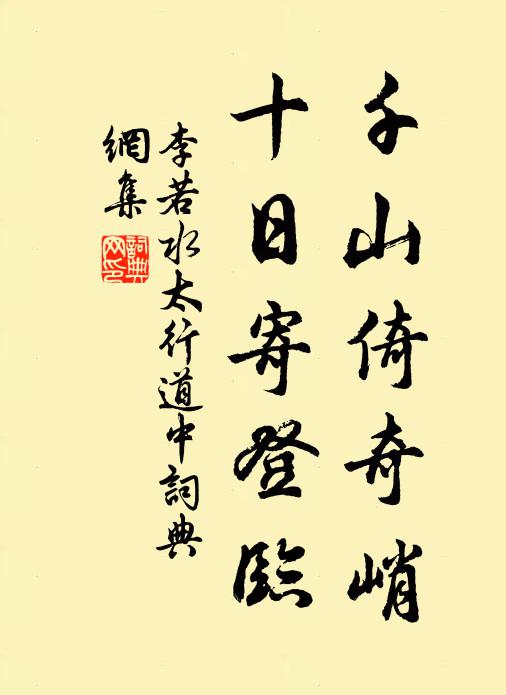 千山倚奇峭
十日寄登臨
李若水太行道中詞典
網集
詞典
网印